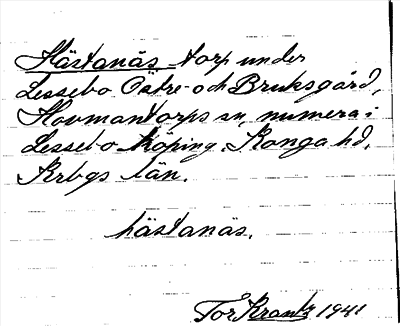 Hästanäs torp under
Lessebo Östre- och Bruksgård,
Hovmantorps sn, numera i
Lessebo köping. Konga hd.
Krbgs län.
hästanäs.
Tor Krantz 1941